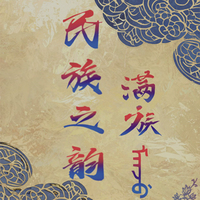 民族之韵
满族
ᠮᠠᠨᠵᡠ